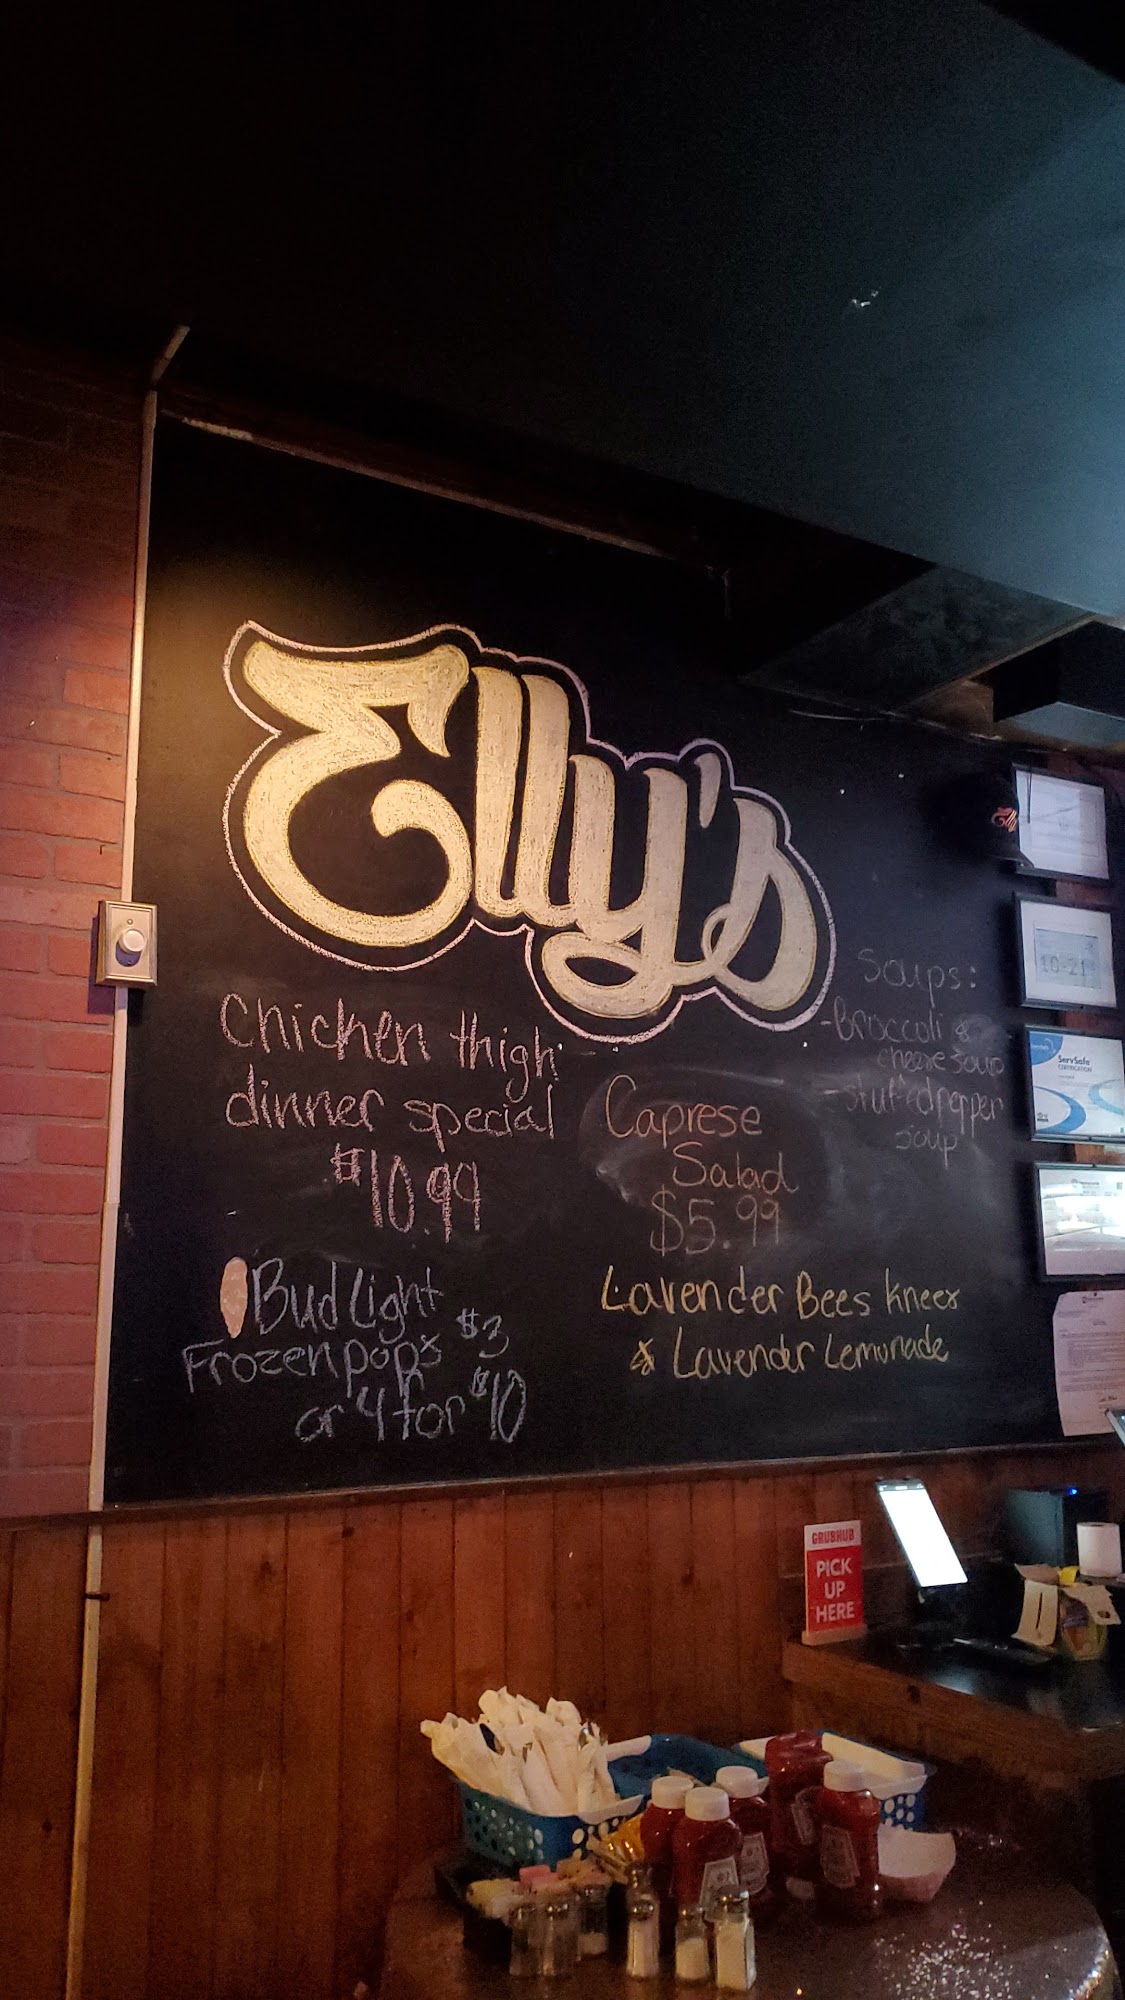 Elly's
Chicken thigh
dinner special
$10.99
Bud Light
Frozen pops $3
or 4 for $10
Caprese
Salad
$5.99
Lavender Bees knees
& Lavender Lemonade
Soups:
-Broccoli &
cheese soup
-stuffed pepper
soup
Elly
10-21
ServSafe
CERTIFICATION
GRUBHUB
PICK
UP
HERE